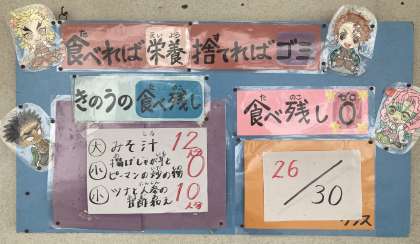 食べれば栄養 捨てればゴミ
きのうの食べ残し
大 みそ汁 12人分
小 揚げじゃが芋と
ピーマンの炒め物 0
小 ツナと人参の
甘酢和え 10人分
食べ残し0
26/30
クラス